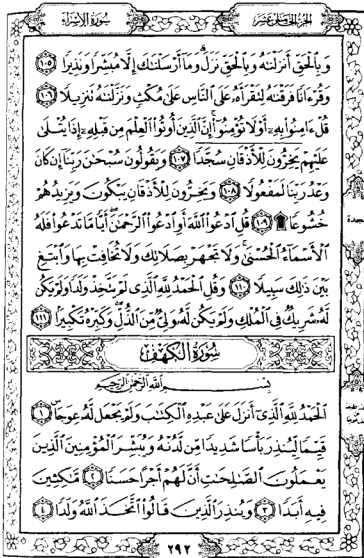 الجزء الخامس عشر
سورة الإسراء
وَبِالْحَقِّ أَنزَلْنَاهُ وَبِالْحَقِّ نَزَلَ وَمَا أَرْسَلْنَاكَ إِلَّا مُبَشِّرًا وَنَذِيرًا ١٠٥
وَقُرْءَانًا فَرَقْنَاهُ لِتَقْرَأَهُ عَلَى النَّاسِ عَلَى مُكْثٍ وَنَزَّلْنَاهُ تَنزِيلًا ١٠٦
قُلْ ءَامِنُوا بِهِ أَوْ لَا تُؤْمِنُوا إِنَّ الَّذِينَ أُوتُوا الْعِلْمَ مِن قَبْلِهِ إِذَا يُتْلَى
عَلَيْهِمْ يَخِرُّونَ لِلْأَذْقَانِ سُجَّدًا ١٠٧ وَيَقُولُونَ سُبْحَانَ رَبِّنَا إِن كَانَ
وَعْدُ رَبِّنَا لَمَفْعُولًا ١٠٨ وَيَخِرُّونَ لِلْأَذْقَانِ يَبْكُونَ وَيَزِيدُهُمْ
خُشُوعًا ۩ ١٠٩ قُلِ ادْعُوا اللَّهَ أَوِ ادْعُوا الرَّحْمَنَ أَيًّا مَّا تَدْعُوا فَلَهُ
الْأَسْمَاءُ الْحُسْنَى وَلَا تَجْهَرْ بِصَلَاتِكَ وَلَا تُخَافِتْ بِهَا وَابْتَغِ
بَيْنَ ذَلِكَ سَبِيلًا ١١٠ وَقُلِ الْحَمْدُ لِلَّهِ الَّذِي لَمْ يَتَّخِذْ وَلَدًا وَلَمْ يَكُن
لَّهُ شَرِيكٌ فِي الْمُلْكِ وَلَمْ يَكُن لَّهُ وَلِيٌّ مِّنَ الذُّلِّ وَكَبِّرْهُ تَكْبِيرًا ١١١
سُورَةُ الْكَهْفِ
بِسْمِ اللَّهِ الرَّحْمَنِ الرَّحِيمِ
الْحَمْدُ لِلَّهِ الَّذِي أَنزَلَ عَلَى عَبْدِهِ الْكِتَابَ وَلَمْ يَجْعَل لَّهُ عِوَجًا ١
قَيِّمًا لِّيُنذِرَ بَأْسًا شَدِيدًا مِّن لَّدُنْهُ وَيُبَشِّرَ الْمُؤْمِنِينَ الَّذِينَ
يَعْمَلُونَ الصَّالِحَاتِ أَنَّ لَهُمْ أَجْرًا حَسَنًا ٢ مَّاكِثِينَ
فِيهِ أَبَدًا ٣ وَيُنذِرَ الَّذِينَ قَالُوا اتَّخَذَ اللَّهُ وَلَدًا ٤
٢٩٣